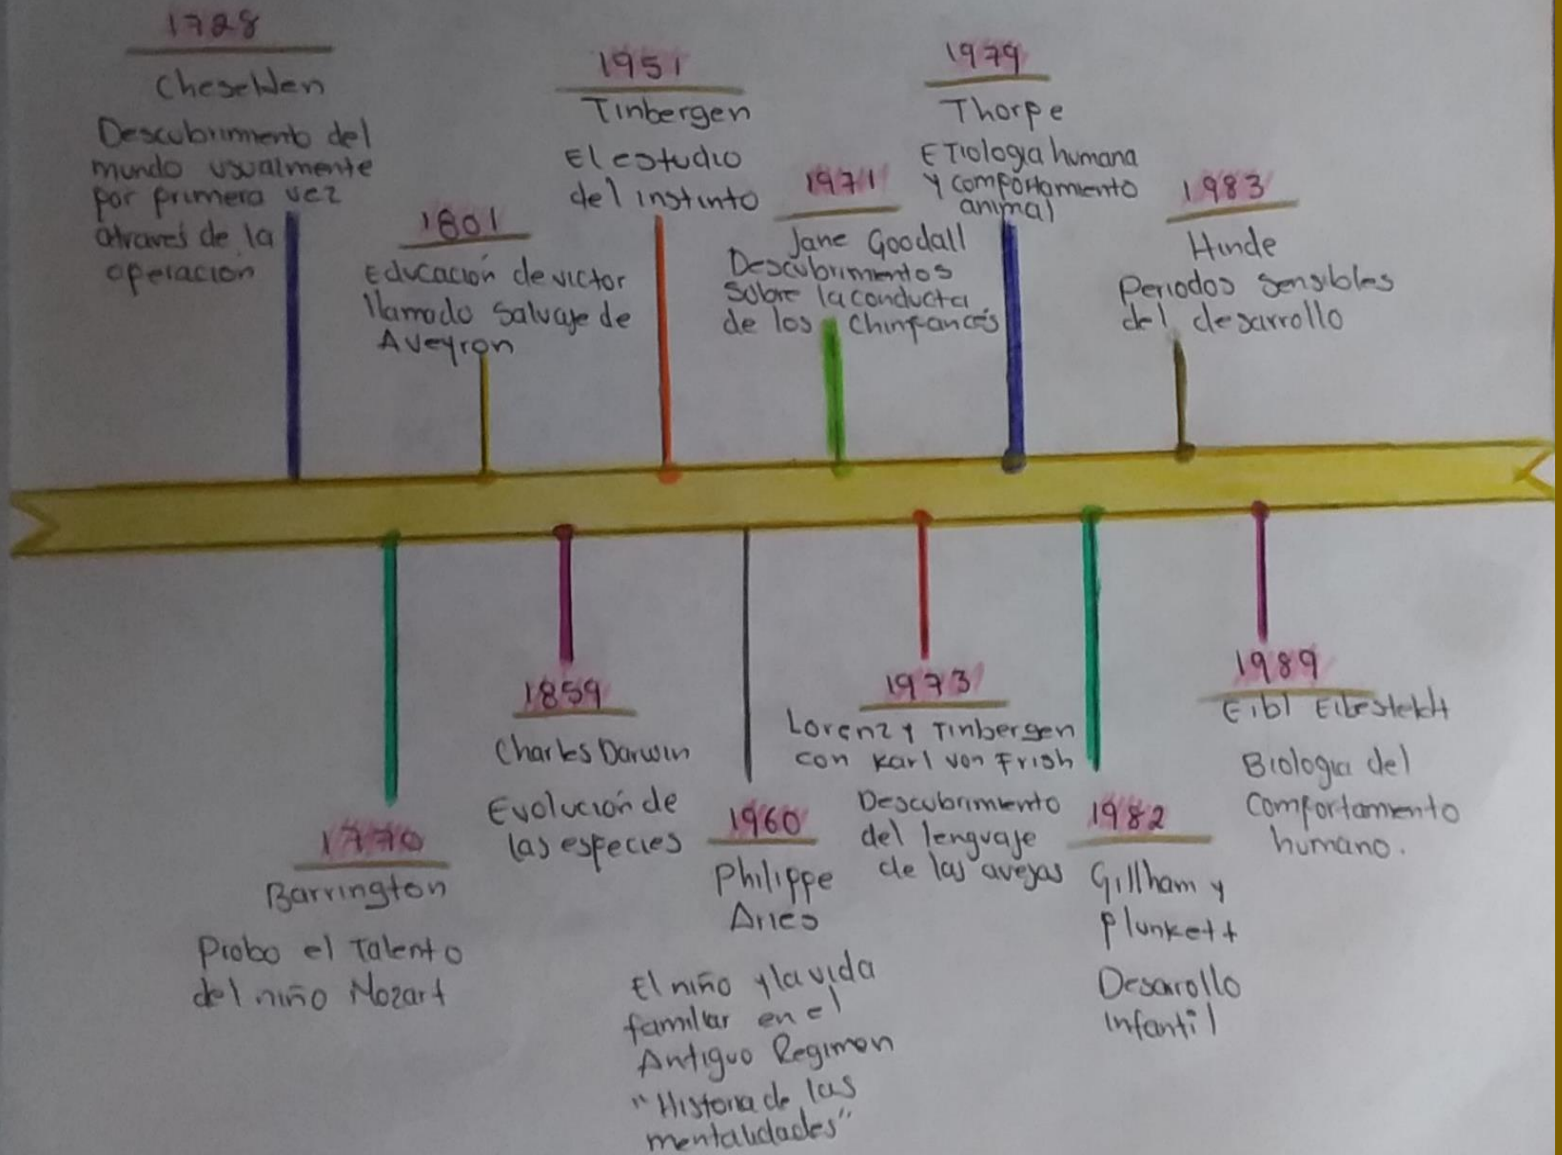 1728
Cheselden
Descubrimento del
mundo usualmente
por primera vez
atraves de la
operación
1801
Educación de victor
llamado Salvaje de
Aveyron
1951
Tinbergen
El estudio
del instinto
1971
Jane Goodall
Descubrimentos
sobre la conducta
de los Chinfancés
1979
Thorpe
ETiologia humana
y comportamiento
animal
1983
Hinde
Periodos sensibles
del desarrollo
1770
Barrington
Probo el Talento
del niño Mozart
1859
Charles Darwin
Evolución de
las especies
1960
Philippe
Aries
El niño y la vida
familiar en el
Antiguo Regimen
"Historia de las
mentalidades"
1973
Lorenz y Tinbergen
con Karl von Frish
Descubrimento
del lenguaje
de las avejas
1982
Gillham y
Plunkett
Desarollo
Infantil
1989
Eibl
Biologia del
Comportamento
humano.